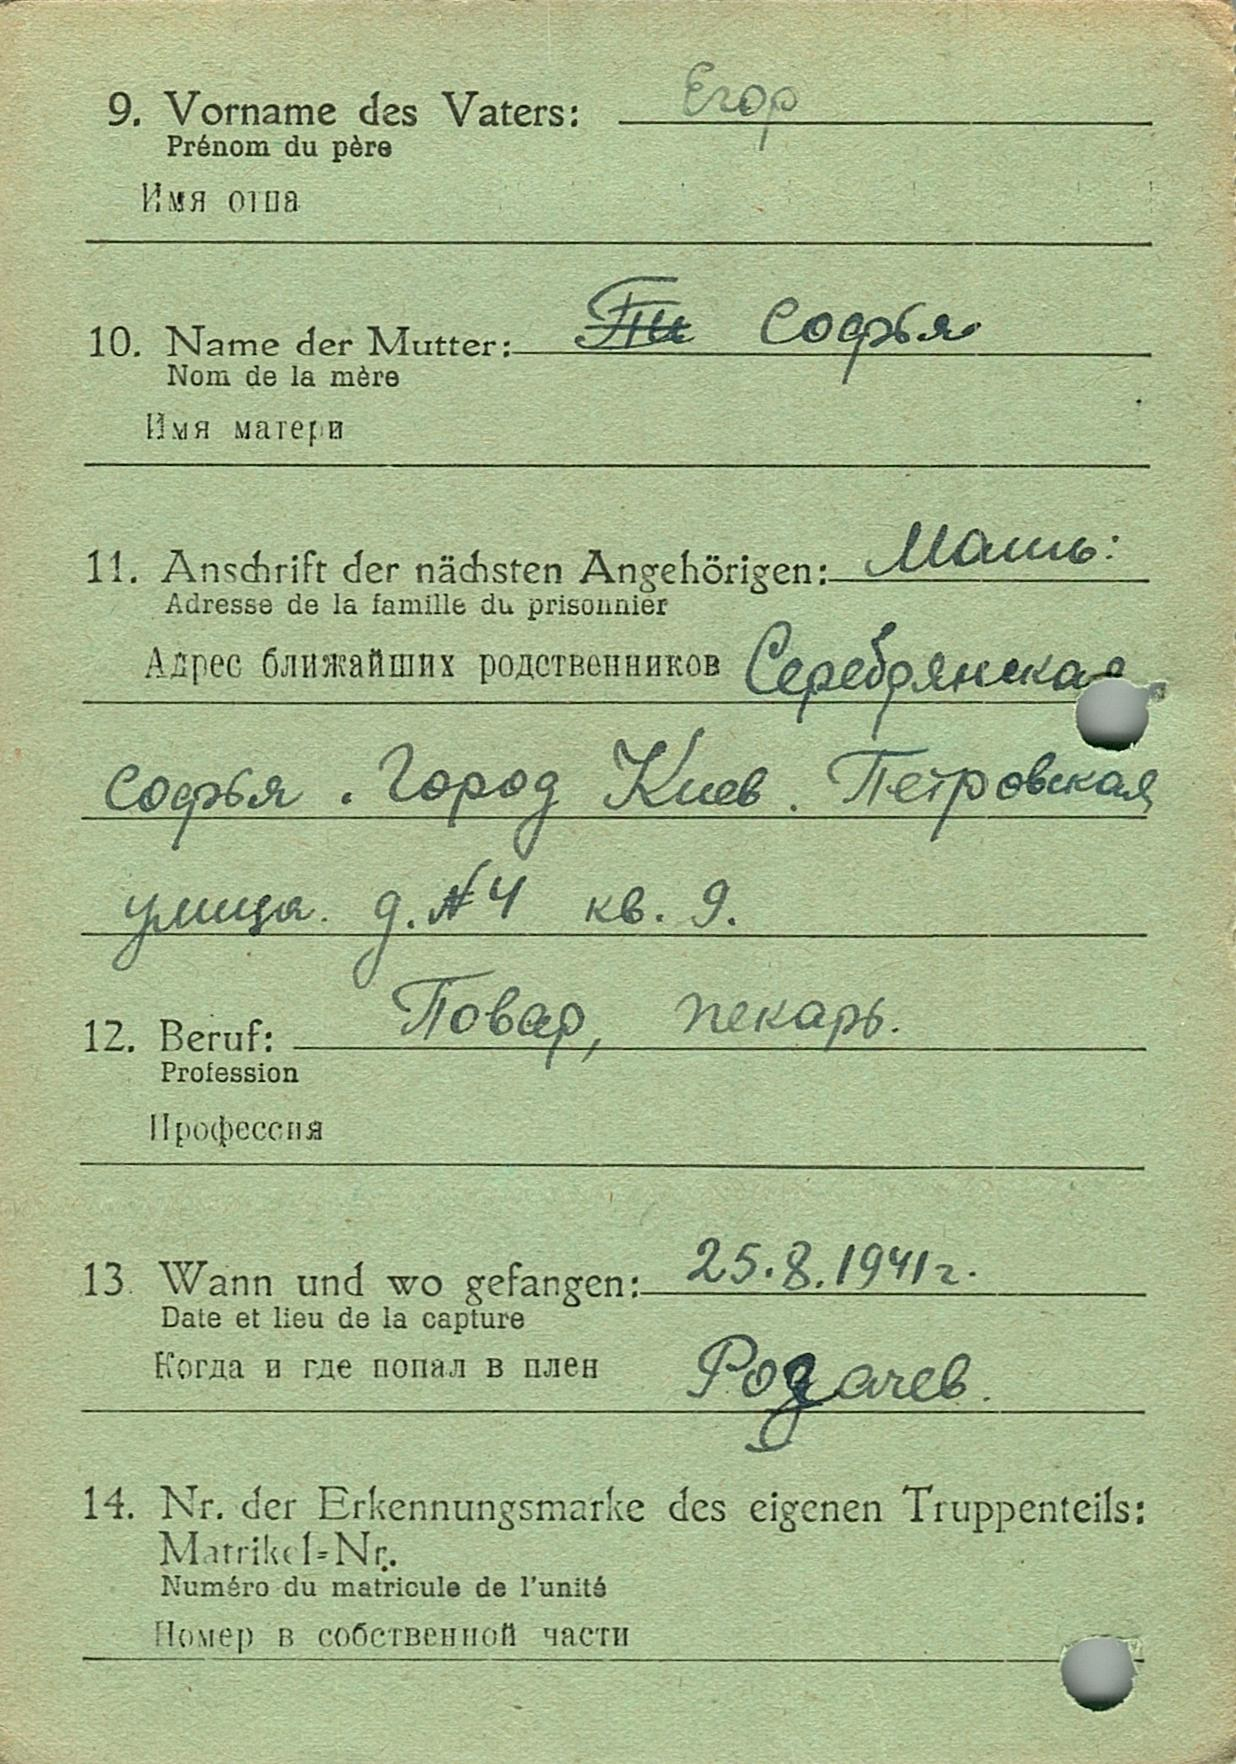 9. Vorname des Vaters: Егор
Prénom du père
Имя отца
10. Name der Mutter: Софья
Nom de la mère
Имя матери
11. Anschrift der nächsten Angehörigen: Мать:
Adresse de la famille du prisonnier
Адрес ближайших родственников Серебрянская
Софья. Город Киев. Петровская
улица. д. № 4 кв. 9.
12. Beruf: Повар, пекарь.
Profession
Профессия
13. Wann und wo gefangen: 25.8.1941г.
Date et lieu de la capture
Когда и где попал в плен Рогачев.
14. Nr. der Erkennungsmarke des eigenen Truppenteils:
Matrikel-Nr.
Numéro du matricule de l'unité
Номер в собственной части